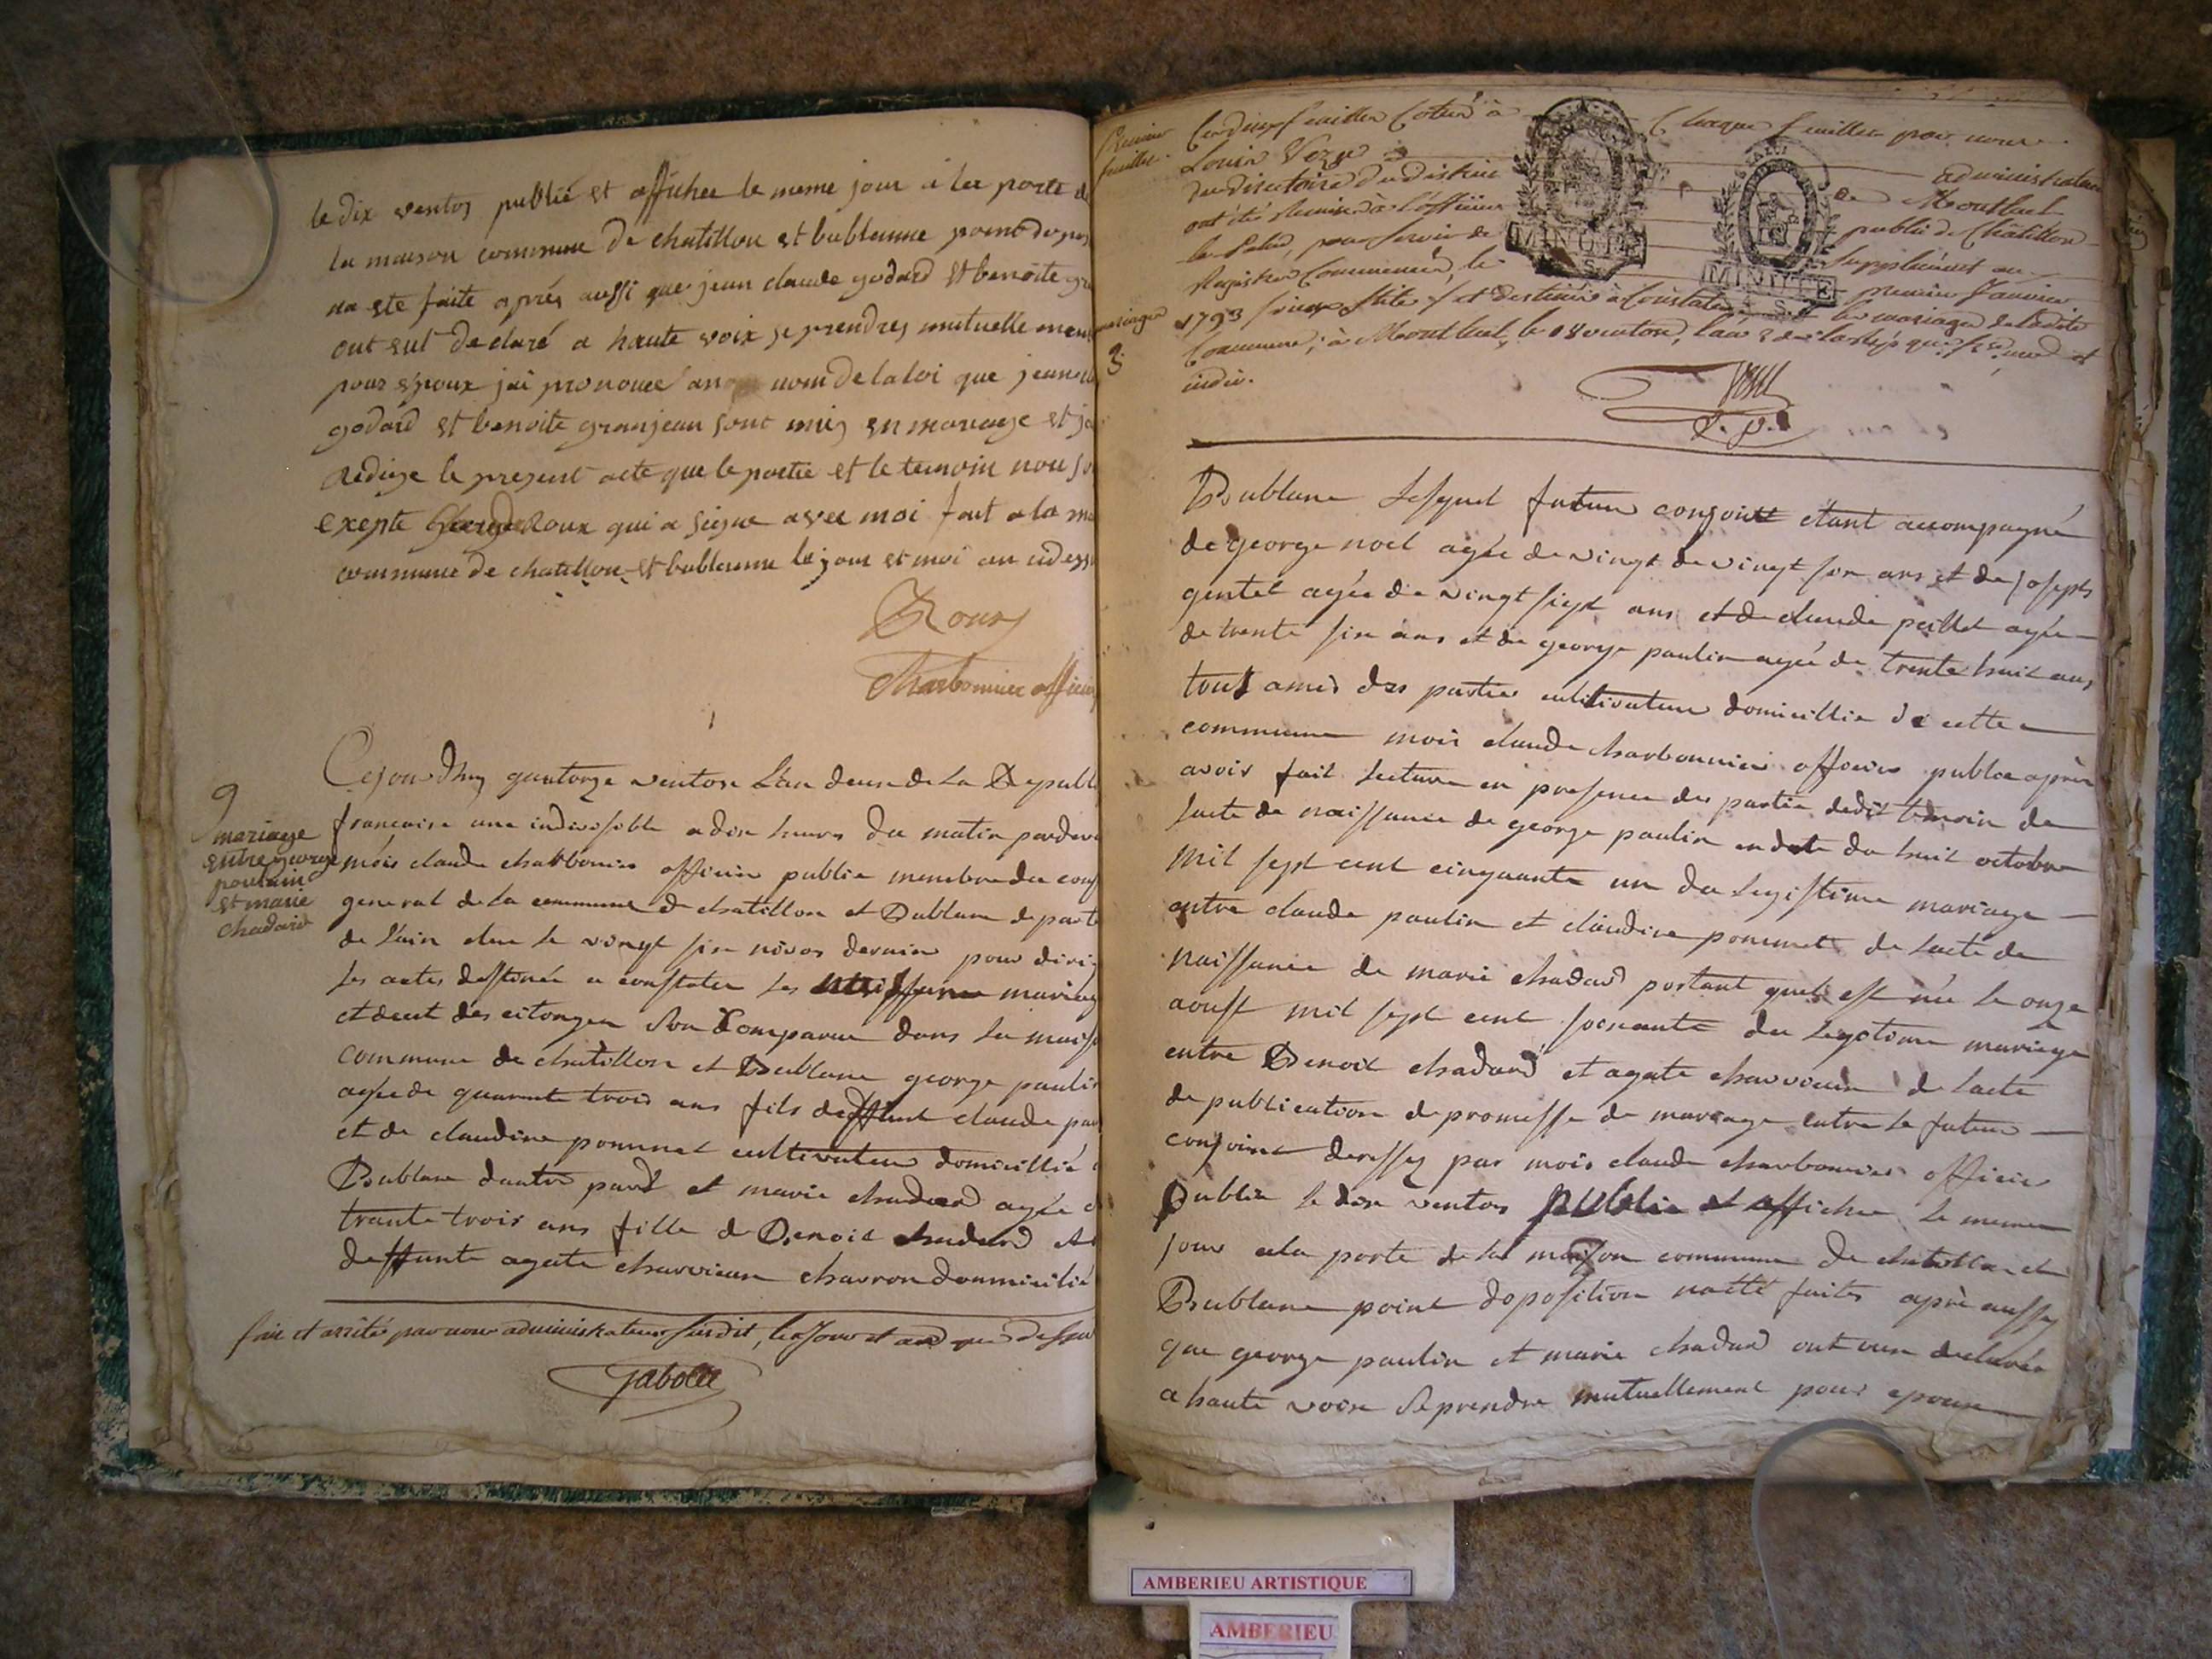 le dix ventos publié et affichee le meme jour a la porte de
la maison commune de chatillon et bublanne point dopos
na ete faite aprés aussi que jean claude godard et benoite gra
out declaré a haute voix se prendres mutuelle ment
pour epoux jai prononce au nom de la loi que jean
godard et benoite granjean sont unis en mariage et jai
redige le present acte que le partie et le temoin non su
exepte Roux qui a signe avec moi fait a la mai
commune de chatillon et bublanne le jour et moi an cidess
Roux
Charbonnier officier
9
mariage
entre george
paulain
et marie
chadard
Cejourdhuy quatorze ventose L'an deux de La Republi
francaise une indivisible a dix heures du matin pardeva
mois claude charbonnier officier public membre du cons
general de la commune de chatillon et Bublane departe
de L'ain elue le vingt six nivos dernier pour dirig
les actes destinée a constater les naissance mariag
et deces des citoyen son comparue dans la maiso
commune de chatillon et Bublane george paulin
agée de quarante trois ans fils deffunt claude pau
et de claudine pommet cultivateur domicillié
Bublane dautre part et marie chadard agée d
trante trois ans fille de Benoit chadard et
deffunte agate chavvieux chavron doumicilié
fait et arrêté par nous administrateur susdit, les Jour et an que dessus
Jabotte
Premier
feuillet
Ces deux feuilles Cotées à Chaque feuillet par nous
Louis administrateur
du directoire du district de Montluel
ont été Remises à l'officier public de Châtillon
la Palud, pour servir de Supplément au
Registre Commencé, le premier Janvier
MINUTE
MINUTE
mariages
1793 vieux stile et destinés à Constater les mariages de ladite
Commune; à Montluel, le 18 ventose, L'an 2 de la Rép. que fse. une et
3
indiv.
Bublane Lesquel futeur conjoint étant accompagné
de george noel agée de vingt de vingt six ans et de joseph
gentet agée de vingt sept ans et de claude peillet agée
de trente six ans et de george paulin agée de trente huit ans
tous amis des parties cultivateur domicillie de cette
commune mois claude charbonnier officier public après
avoir fait lecture en presence des partie dedit temoin de
lacte de naissance de george paulin en date du huit octobre
mil sept cent cinquante un du legistime mariage
entre claude paulin et claudine pommet de lacte de
naissance de marie chadard portant quel est née le onze
aoust mil sept cent soixante du legitime mariage
entre Benoit chadard et agate chavvieux de lacte
de publication de promesse de mariage entre le futeur
conjoint deressez par mois claude charbonnier officier
Public le dix ventos public et affichee le meme
jour a la porte de la maison commune de chatillon et
Bublane point doposition naété faites après aussy
que george paulin et marie chadard ont eux declarée
a haute voix se prendre mutuellement pour epoux
AMBERIEU ARTISTIQUE
AMBERIEU